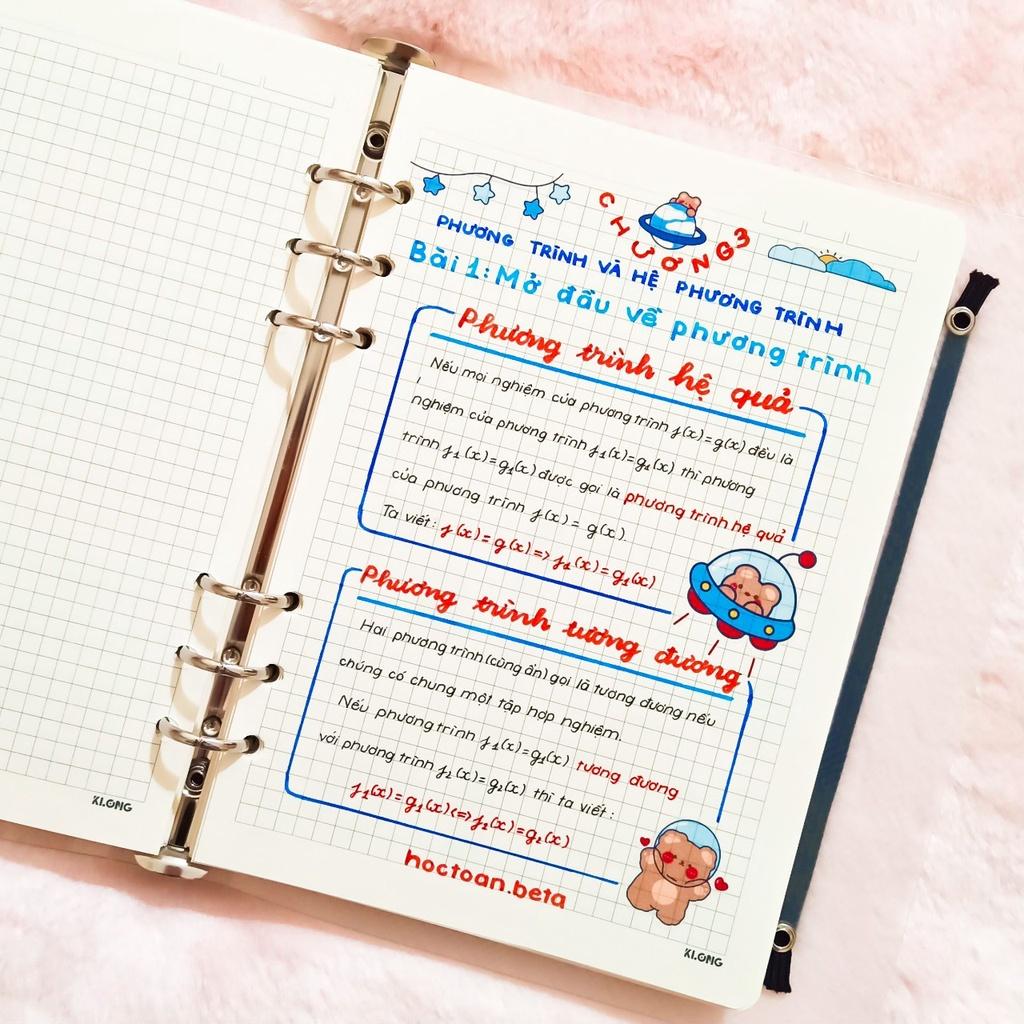 CHƯƠNG 3
PHƯƠNG TRÌNH VÀ HỆ PHƯƠNG TRÌNH
Bài 1: Mở đầu về phương trình
Phương trình hệ quả
Nếu mọi nghiệm của phương trình f(x) = g(x) đều là
nghiệm của phương trình f₁(x) = g₁(x) thì phương
trình f₁(x) = g₁(x) được gọi là phương trình hệ quả
của phương trình f(x) = g(x).
Ta viết: f(x) = g(x) => f₁(x) = g₁(x)
Phương trình tương đương
Hai phương trình (cùng ẩn) gọi là tương đương nếu
chúng có chung một tập hợp nghiệm.
Nếu phương trình f₁(x) = g₁(x) tương đương
với phương trình f₂(x) = g₂(x) thì ta viết:
f₁(x) = g₁(x) <=> f₂(x) = g₂(x)
hoctoan.beta
KLONG
KLONG